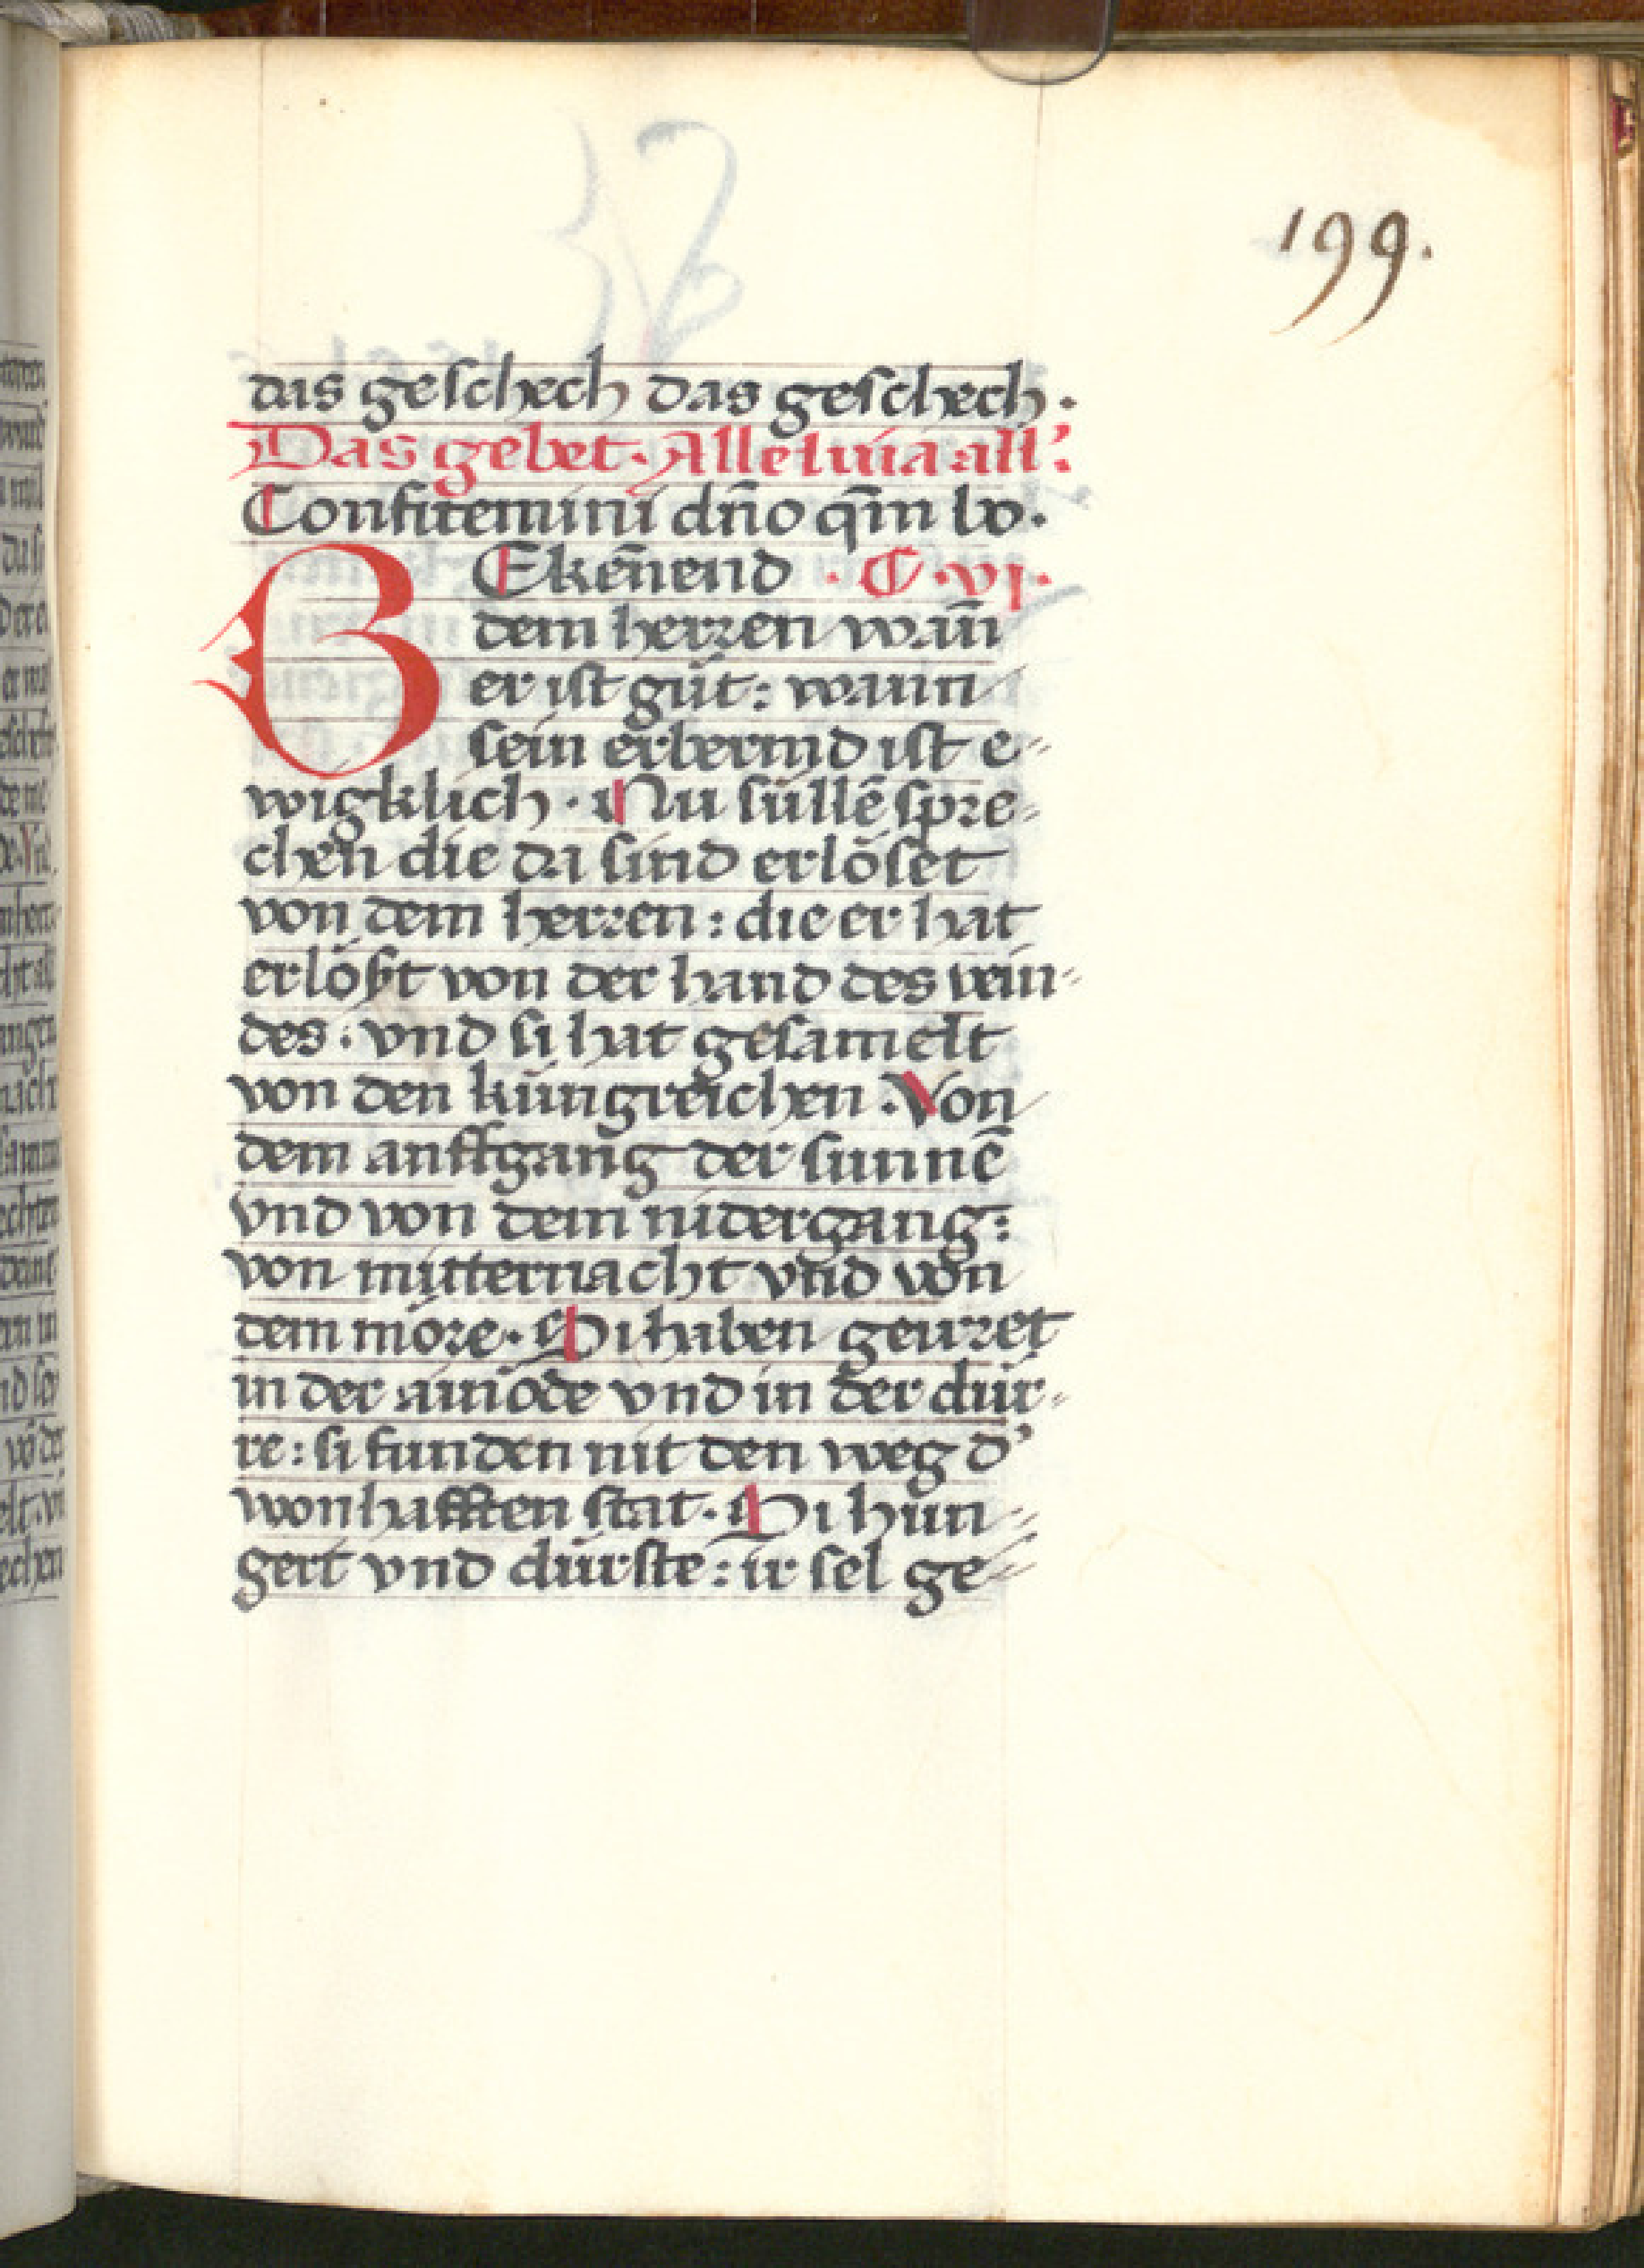 199.
das geschech das geschech.
Das gebet. Alleluia all':
Confitemini dn̄o qm̄ bo.
BEkēnend · C · vi ·
dem herren wan̄
er ist gůt: wann
sein erbermd ist e-
wigklich · Nu süllē spre-
chen die da sind erlöset
von dem herren: die er hat
erlößt von der hand des vein-
des: vnd si hat gesamelt
von den küngreichen. Von
dem auffgang der sunnē
vnd von dem nidergang:
von mitternacht vnd von
dem möre. Si haben geirret
in der ainöde vnd in der dür-
re: si funden nit den weg d'
wonhafften stat. Si hun-
gert vnd dürste: ir sel ge-